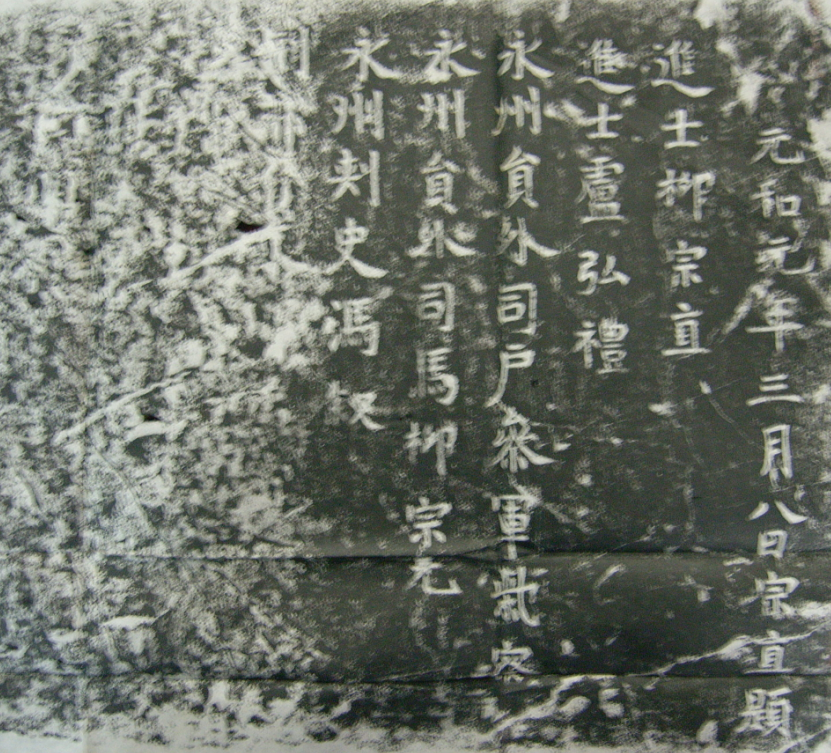 永州刺史馮叙
永州員外司馬柳宗元
永州員外司戶參軍柴察
進士盧弘禮
進士柳宗直
元和元年三月八日宗直題